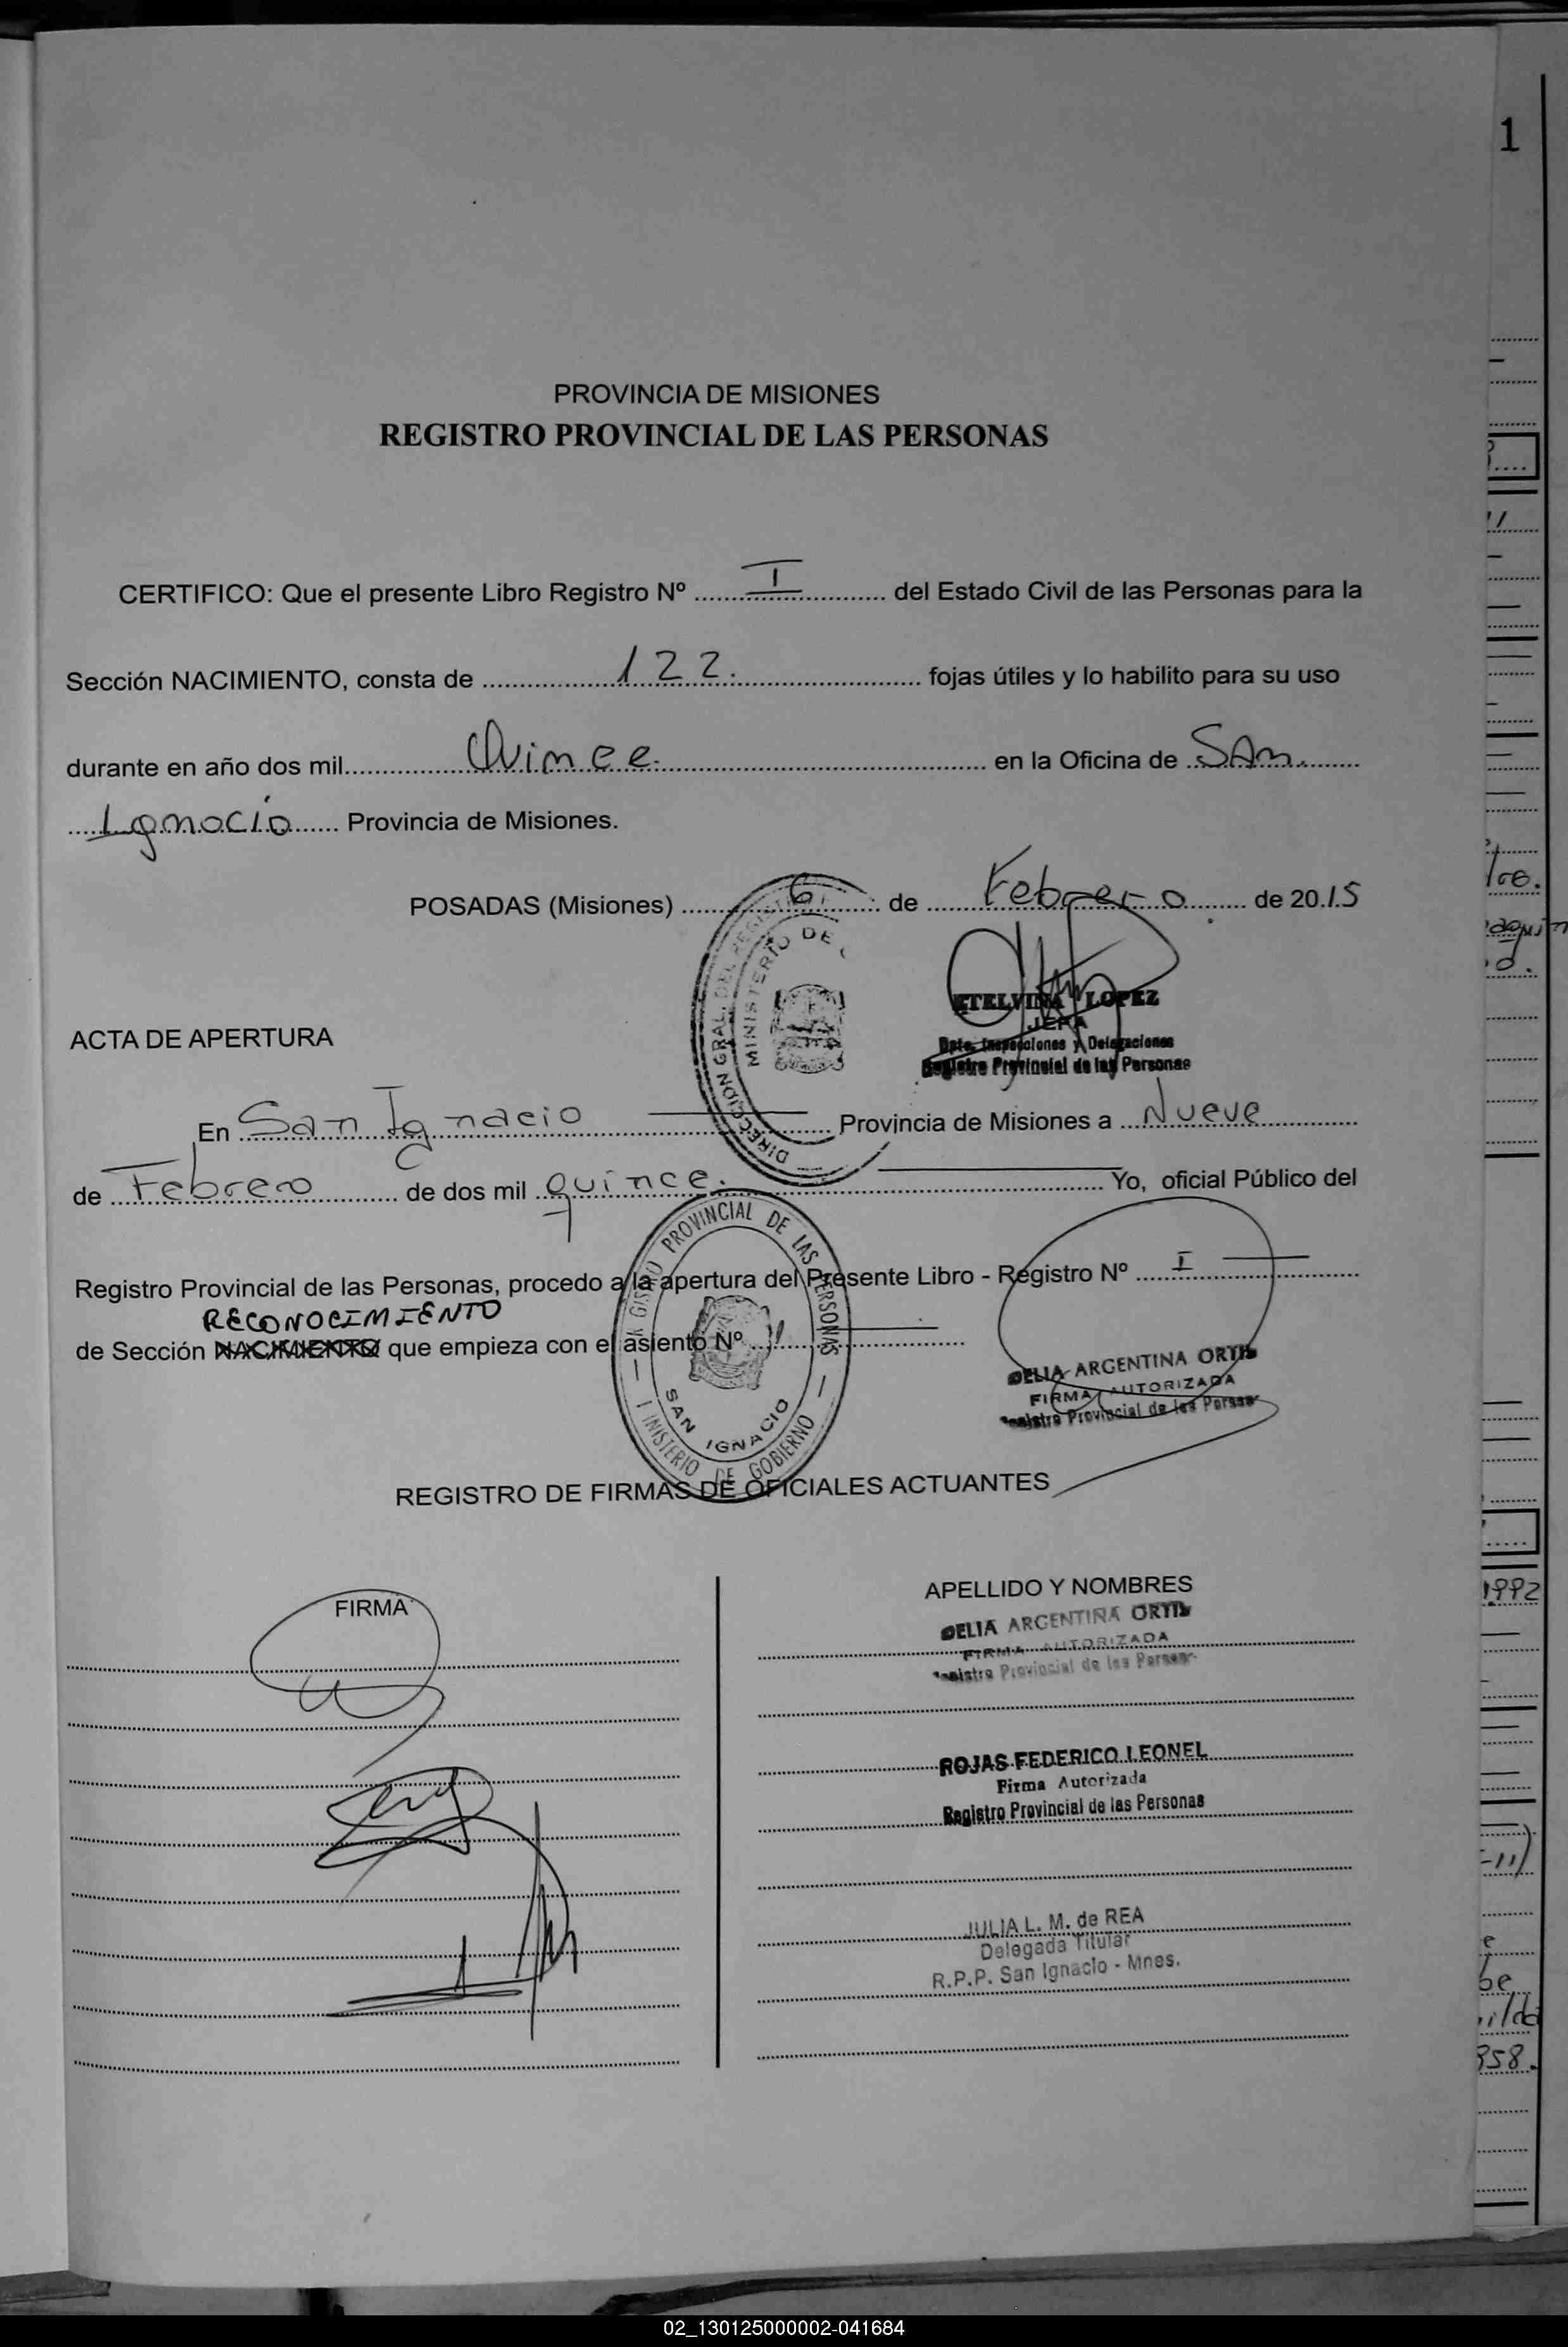 1
PROVINCIA DE MISIONES
REGISTRO PROVINCIAL DE LAS PERSONAS
CERTIFICO: Que el presente Libro Registro Nº I del Estado Civil de las Personas para la
Sección NACIMIENTO, consta de 122. fojas útiles y lo habilito para su uso
durante en año dos mil Quince. en la Oficina de SAn.
Ignacio Provincia de Misiones.
POSADAS (Misiones) 6 de Febrero de 2015
DIRECCION GRAL. DEL REGISTRO
MINISTERIO DE
ETELVINA LOPEZ
JEFA
Dpto. Inspecciones y Delegaciones
Registro Provincial de las Personas
ACTA DE APERTURA
En San Ignacio Provincia de Misiones a Nueve
de Febrero de dos mil quince. Yo, oficial Público del
Registro Provincial de las Personas, procedo a la apertura del Presente Libro - Registro Nº I
RECONOCIMIENTO
de Sección NACIMIENTO que empieza con el asiento Nº 1
PROVINCIAL DE LAS PERSONAS
SAN IGNACIO
MINISTERIO DE GOBIERNO
DELIA ARGENTINA ORTIZ
FIRMA AUTORIZADA
Registro Provincial de las Personas
REGISTRO DE FIRMAS DE OFICIALES ACTUANTES
FIRMA
APELLIDO Y NOMBRES
DELIA ARGENTINA ORTIZ
FIRMA AUTORIZADA
Registro Provincial de las Personas
ROJAS FEDERICO LEONEL
Firma Autorizada
Registro Provincial de las Personas
JULIA L. M. de REA
Delegada Titular
R.P.P. San Ignacio - Mnes.
1992
958.
02_130125000002-041684